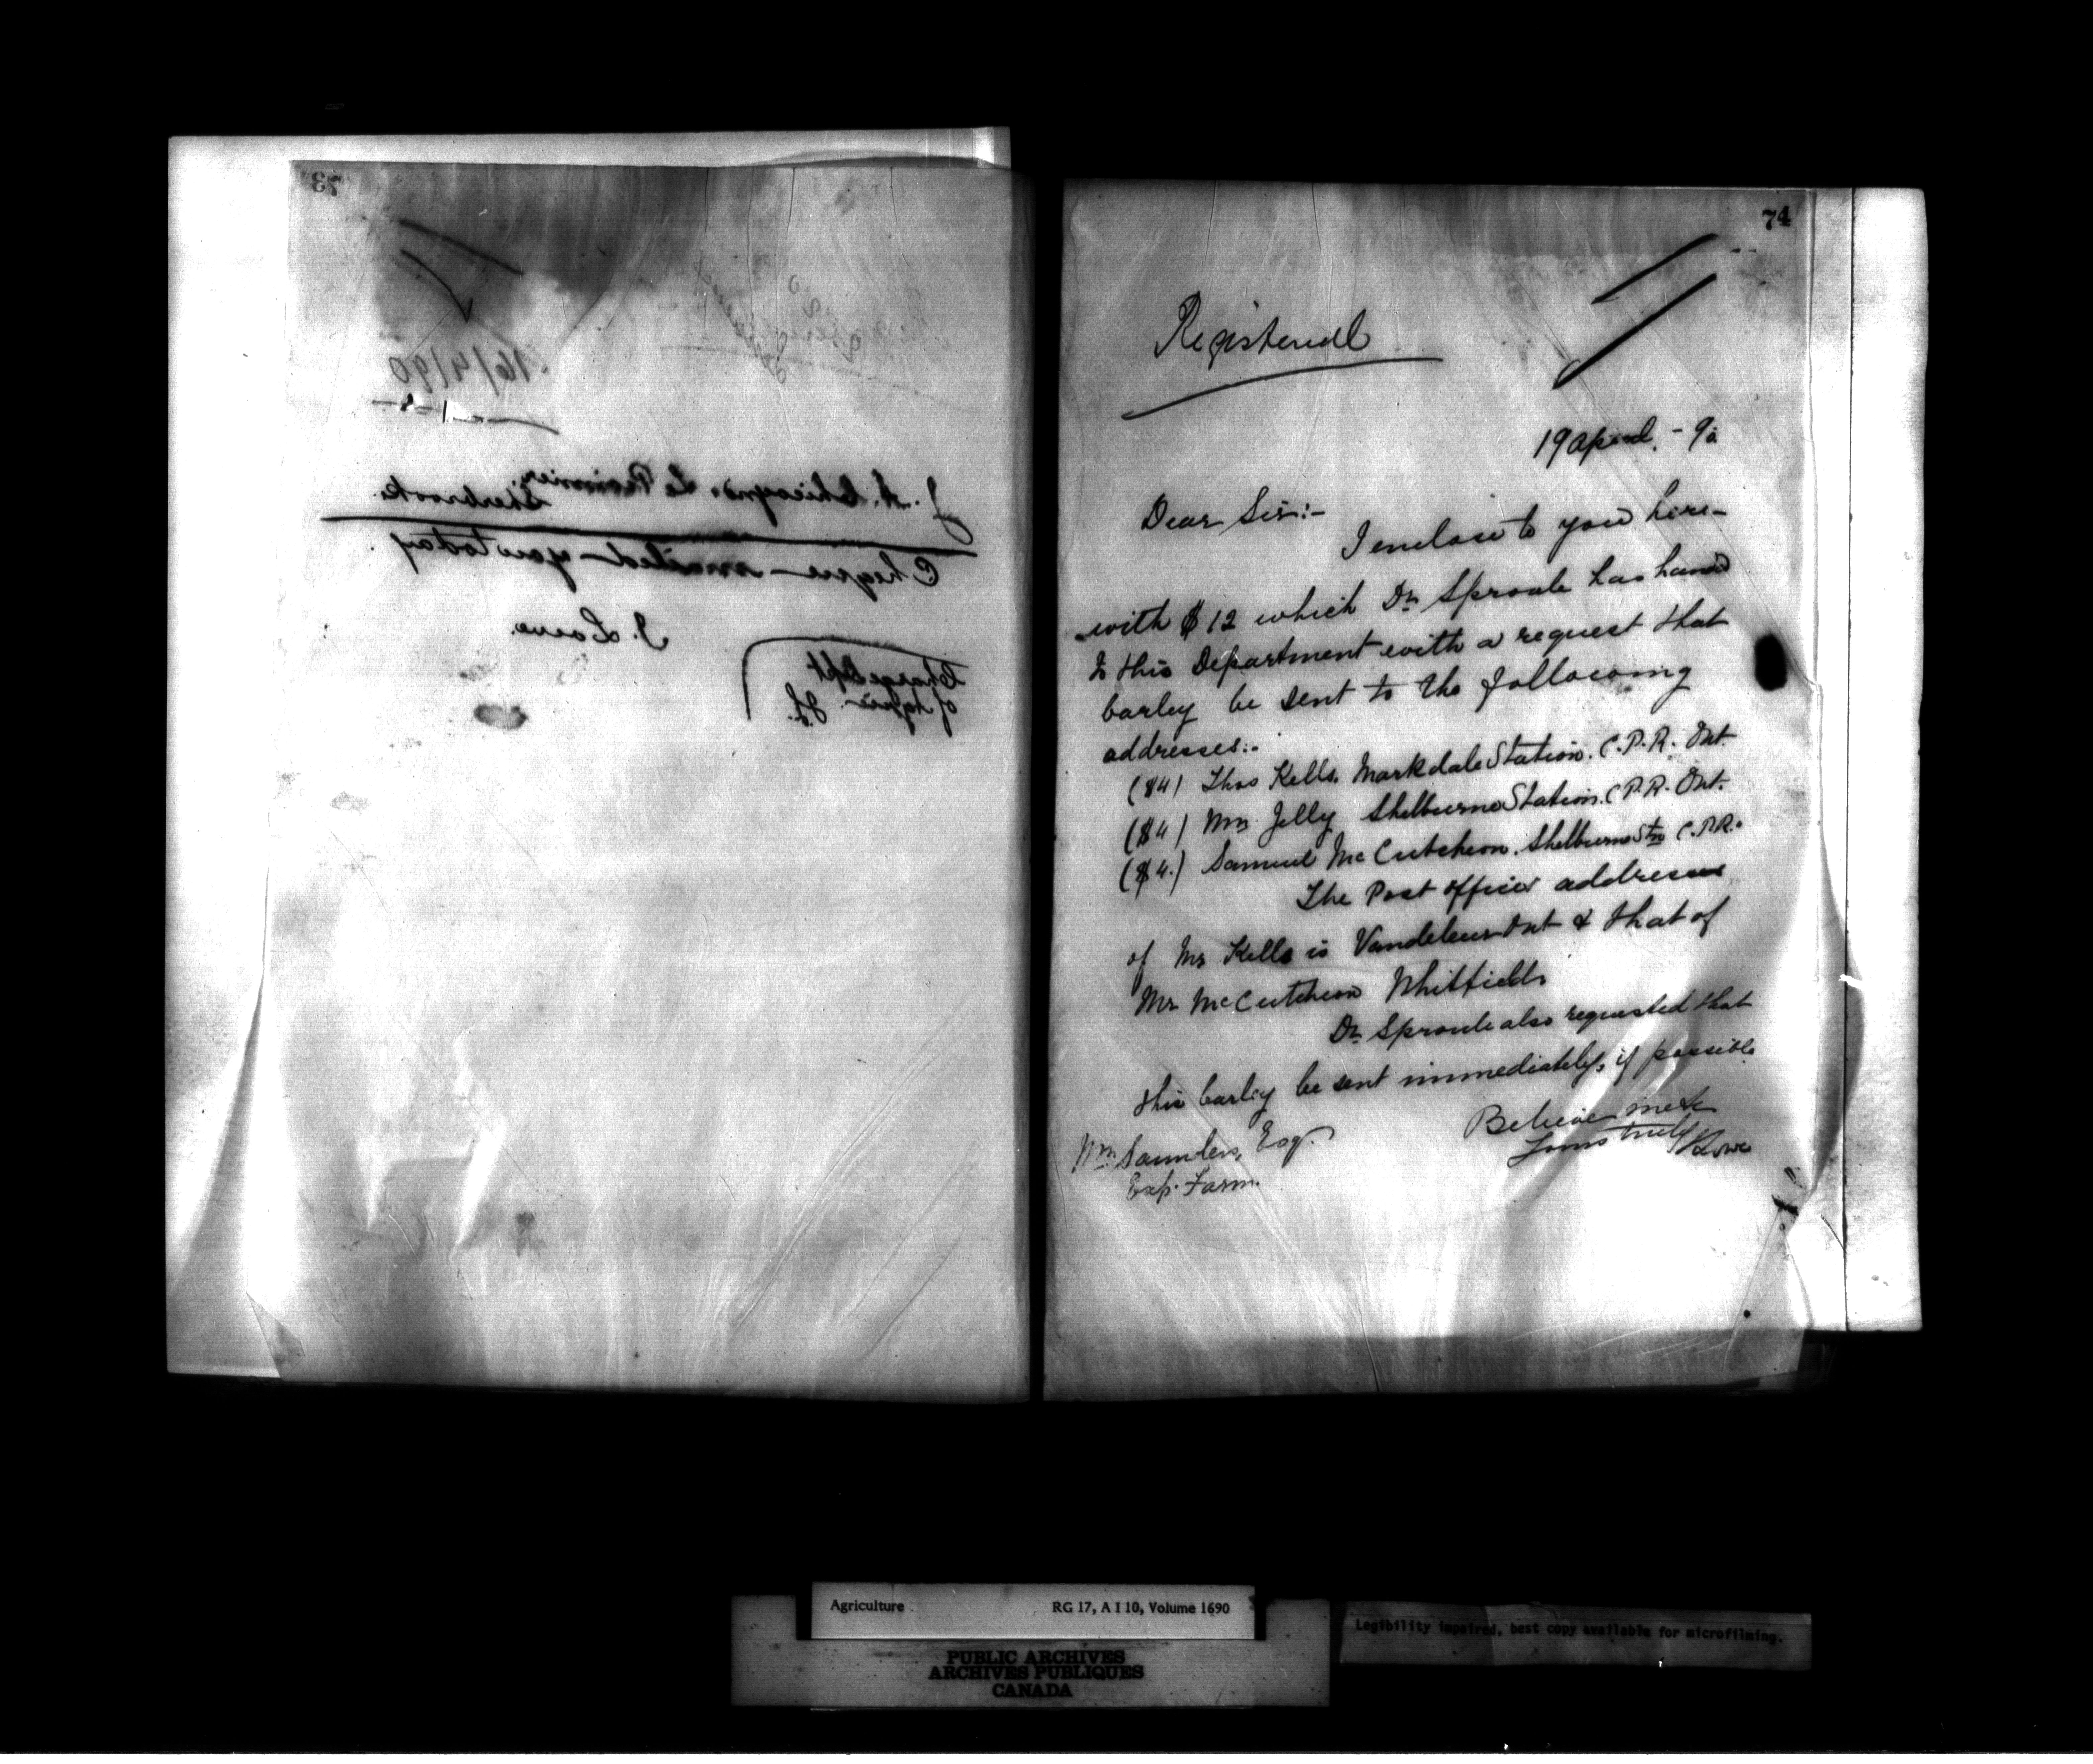 73
16/4/90
J. A. Chicoyne. Le Pionnier.
Sherbrooke.
Cheque mailed you today.
J. Lowe.
Charge Dept
of Agric.
74
Registered
19 April. - 90
Dear Sir:-
I enclose to you here-
with $12 which Dr Sproule has handed
to this Department with a request that
barley be sent to the following
addresses:-
($4) Thos Kells. Markdale Station. C.P.R. Ont.
($4) Wm Jelly Shelburne Station. C.P.R. Ont.
($4.) Samuel McCutcheon. Shelburne Stn C.P.R.
The Post Office addresses
of Mr Kells is Vandeleur Ont & that of
Mr McCutcheon Whitfield.
Dr Sproule also requested that
this barley be sent immediately, if possible
Believe me
Yours truly
J Lowe
Wm Saunders, Esq.
Exp. Farm.
Agriculture RG 17, A I 10, Volume 1690
PUBLIC ARCHIVES
ARCHIVES PUBLIQUES
CANADA
Legibility impaired, best copy available for microfilming.